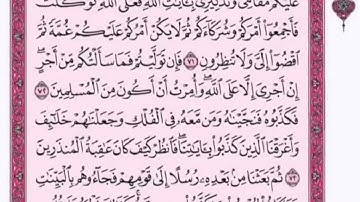 عَلَيْكُم مَّقَامِى وَتَذْكِيرِى بِـَٔايَٰتِ ٱللَّهِ فَعَلَى ٱللَّهِ تَوَكَّلْتُ
فَأَجْمِعُوٓا۟ أَمْرَكُمْ وَشُرَكَآءَكُمْ ثُمَّ لَا يَكُنْ أَمْرُكُمْ عَلَيْكُمْ غُمَّةً ثُمَّ
ٱقْضُوٓا۟ إِلَىَّ وَلَا تُنظِرُونِ ٧١ فَإِن تَوَلَّيْتُمْ فَمَا سَأَلْتُكُم مِّنْ أَجْرٍ
إِنْ أَجْرِىَ إِلَّا عَلَى ٱللَّهِ وَأُمِرْتُ أَنْ أَكُونَ مِنَ ٱلْمُسْلِمِينَ ٧٢
فَكَذَّبُوهُ فَنَجَّيْنَٰهُ وَمَن مَّعَهُۥ فِى ٱلْفُلْكِ وَجَعَلْنَٰهُمْ خَلَٰٓئِفَ
وَأَغْرَقْنَا ٱلَّذِينَ كَذَّبُوا۟ بِـَٔايَٰتِنَا فَٱنظُرْ كَيْفَ كَانَ عَٰقِبَةُ ٱلْمُنذَرِينَ
٧٣ ثُمَّ بَعَثْنَا مِنۢ بَعْدِهِۦ رُسُلًا إِلَىٰ قَوْمِهِمْ فَجَآءُوهُم بِٱلْبَيِّنَٰتِ